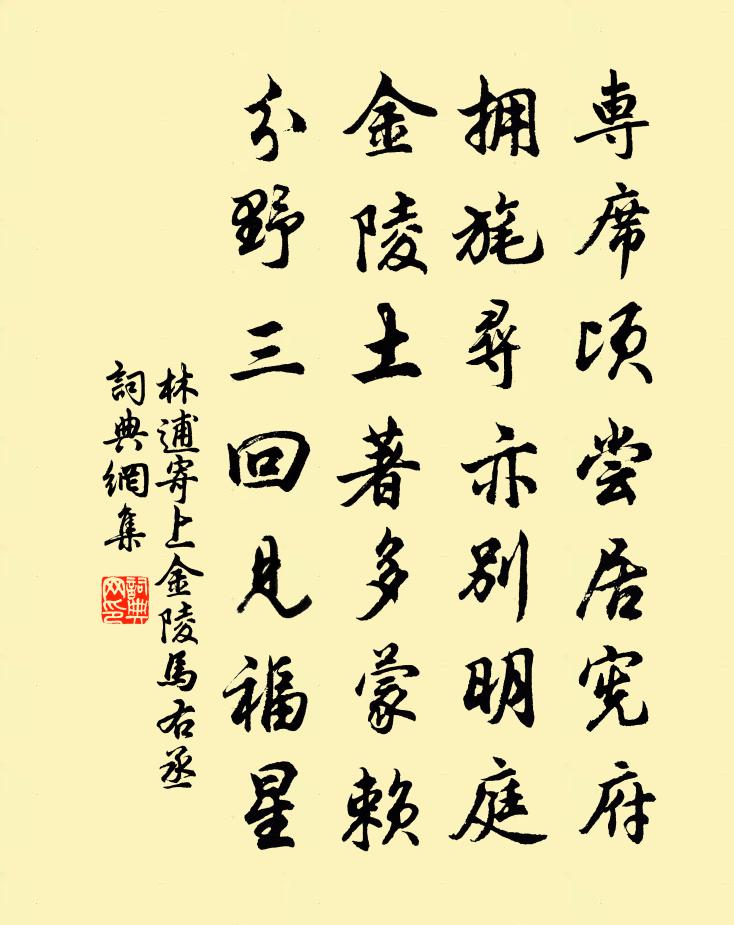 専席頃尝居宪府
拥旄尋亦别明庭
金陵土著多蒙赖
分野三回见福星
林逋寄上金陵馬右丞
詞典網集
詞典
网印